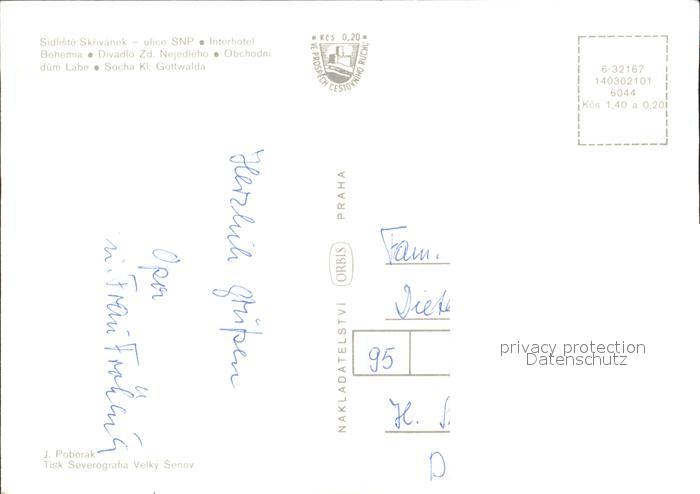 Sídliště Skřivánek – ulice SNP ● Interhotel
Bohemia ● Divadlo Zd. Nejedlého ● Obchodní
dům Labe ● Socha Kl. Gottwalda
Kčs 0,20
VE PROSPĚCH CESTOVNÍHO RUCHU
6-32167
140302101
6044
Kčs 1,40 a 0,20
Herzlich grüßen
Opa
u. Frau
NAKLADATELSTVÍ ORBIS PRAHA
Fam.
Diete
95
H. S
D
privacy protection
Datenschutz
J. Poborák
Tisk Severografia Velký Šenov